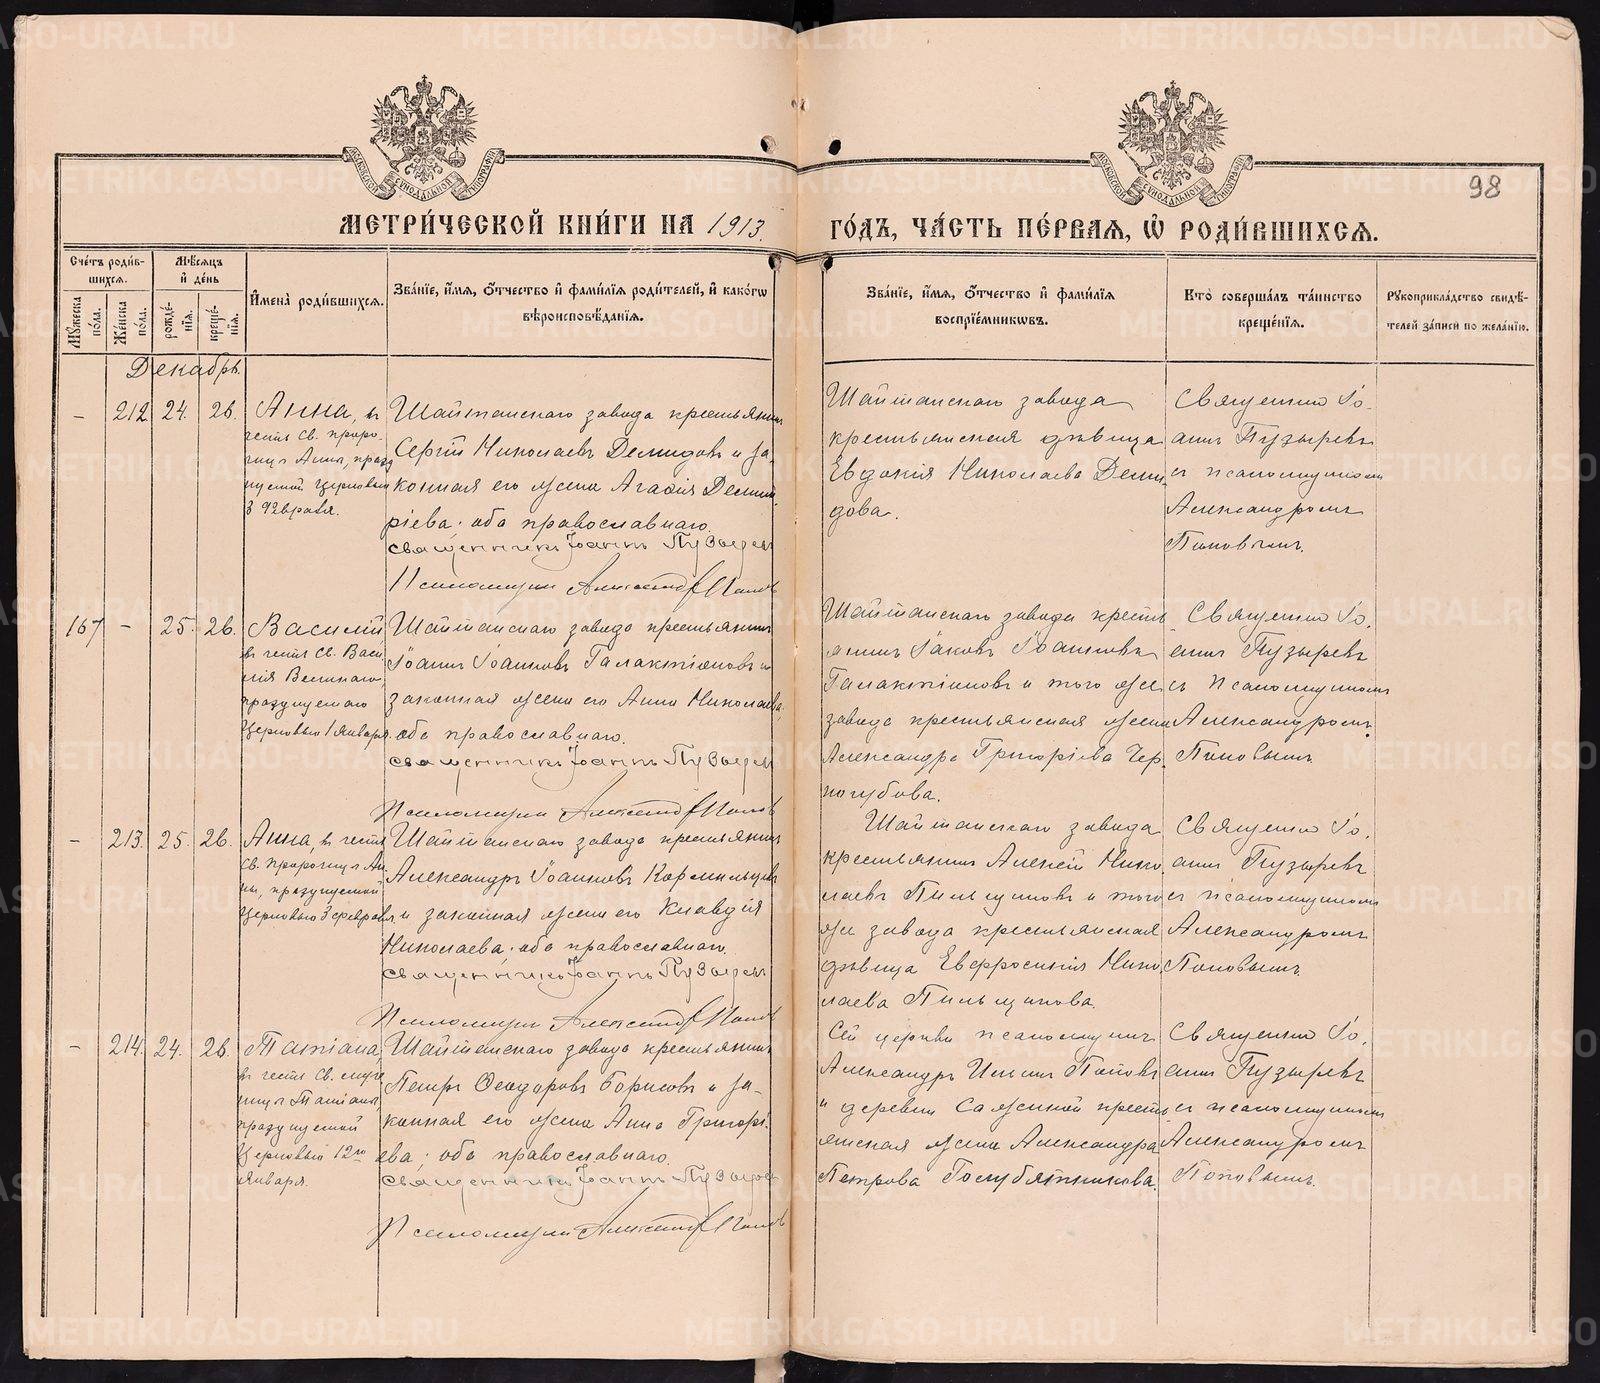 METRIKI.GASO-URAL.RU
МОСКОВСКОЙ СУНОДАЛЬНОЙ ТИПОГРАФІИ
МОСКОВСКОЙ СУНОДАЛЬНОЙ ТИПОГРАФІИ
98
МЕТРИ́ЧЕСКОЙ КНИ́ГИ НА 1913. ГО́ДЪ, ЧА́СТЬ ПЕ́РВАЯ, Ѡ҆ РОДИ́ВШИХСЯ.
Сче́тъ роди́в-
шихся.
Мꙋ́жеска пола.
Же́нска по́ла.
Мѣ́сяцъ
и҆ де́нь
рожде́-
нїя.
креще́-
нїя.
И҆мена̀ роди́вшихся.
Зва́нїе, и҆́мя, ѻ҆́тчество и҆ фами́лїя роди́телей, и҆ како́гѡ
вѣроисповѣ́данїя.
Зва́нїе, и҆́мя, ѻ҆́тчество и҆ фами́лїя
воспрїе́мникѡвъ.
Кто̀ соверша́лъ та́инство
креще́нїя.
Рꙋкоприкла́дство свидѣ́-
телей за́писи по жела́нїю.
Декабрь.
- 212. 24. 26.
Анна, въ
честь Св. проро-
чицы Анны, празд
нуемой Церковью
3 Февраля.
Шайтанскаго завода крестьянинъ
Сергій Николаевъ Демидовъ и за-
конная его жена Агафія Демит
ріева; оба православнаго.
Священникъ Іоаннъ Пузырев
Псаломщикъ Александр Попов
Шайтанскаго завода
крестьянская дѣвица
Евдокія Николаева Деми-
дова.
Священно Іо-
аннъ Пузыревъ
съ псаломщикомъ
Александромъ
Поповымъ.
167 - 25. 26.
Василій
въ честь Св. Васи
лія Великаго,
празднуемаго
Церковью 1 Января.
Шайтанскаго завода крестьянинъ
Іоаннъ Іоанновъ Галактіоновъ и
законная жена его Анна Николаева;
оба православнаго.
Священникъ Іоаннъ Пузырев
Псаломщикъ Александр Попов
Шайтанскаго завода кресть
янинъ Іаковъ Іоанновъ
Галактіоновъ и того же
завода крестьянская жена
Александра Григоріева Чер-
ногубова.
Священно Іо-
аннъ Пузыревъ
съ псаломщикомъ
Александромъ
Поповымъ
- 213. 25. 26.
Анна, въ честь
Св. Пророчицы Ан-
ны, празднуемой
Церковью 3 февраля,
Шайтанскаго завода крестьянинъ
Александръ Іоанновъ Кормильцевъ
и законная жена его Клавдія
Николаева; оба православнаго.
Священникъ Іоаннъ Пузырев
Псаломщикъ Александр Попов
Шайтанскаго завода
крестьянинъ Алексей Нико
лаевъ Пильщиковъ и того
же завода крестьянская
дѣвица Евфросинія Нико
лаева Пильщикова.
Священно Іо-
аннъ Пузыревъ
съ псаломщикомъ
Александромъ
Поповымъ.
- 214. 24. 26.
Татіана
въ честь Св. муче
ницы Татіаны,
празднуемой
Церковью 12го
Января.
Шайтанскаго завода крестьянинъ
Петръ Ѳеодоровъ Борисовъ и за-
конная его жена Анна Григорі-
ева; оба православнаго.
Священникъ Іоаннъ Пузырев
Псаломщикъ Александр Попов
Сей церкви псаломщикъ
Александръ Попов
и деревни Сажиной кресть
янская жена Александра
Петрова Голубятникова.
Священно Іо-
аннъ Пузыревъ
съ псаломщикомъ
Александромъ
Поповымъ.